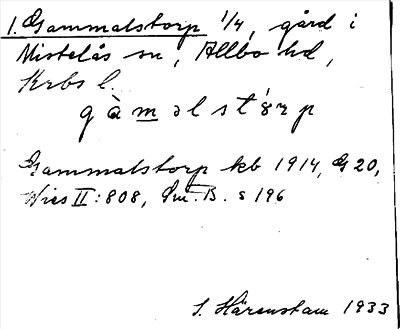 1. Gammalstorp 1/4, gård i
Mistelås sn, Allbo hd,
Krbs l.
gàm əl stórp
Gammalstorp kb 1914, G 20,
Wies II:808, Sm. B. s 196
S. Härenstam 1933